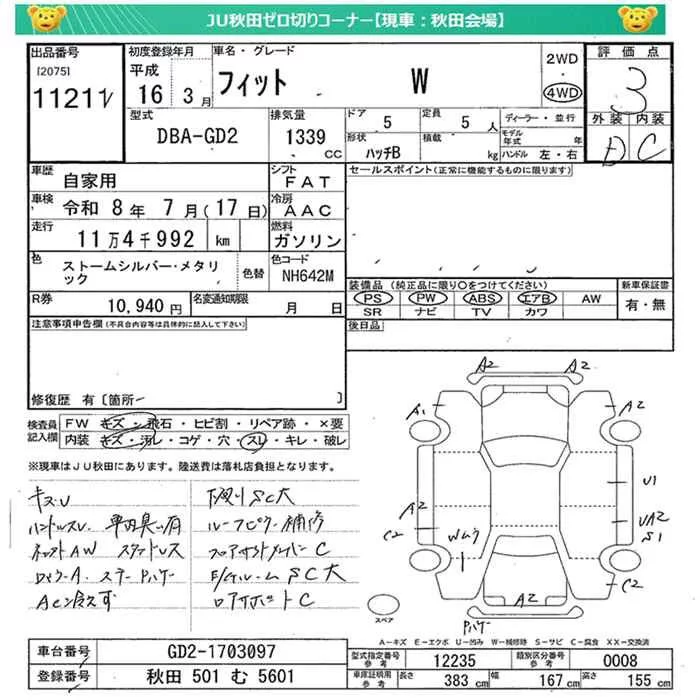 JU秋田ゼロ切りコーナー【現車：秋田会場】
出品番号 初度登録年月 車名・グレード 評価点
[2075] 平成 2WD
11211 16年 3月 フィット W 4WD 3
型式 排気量 ドア 定員 ディーラー・並行 外装 内装
DBA-GD2 1339 CC 5 5人 モデル年式 年
形状 積載 D C
ハッチB kg ハンドル 左・右
車歴 自家用 シフト FAT セールスポイント(正常に機能するものに限ります)
車検 令和 8年 7月(17日) 冷房 AAC
走行 11万4千992 km 燃料 ガソリン
色 ストームシルバー・メタリック 色替 色コード NH642M
装備品 (純正品に限り○をつけてください) 新車保証書
R券 10,940円 名変通知期限 月 日 PS PW ABS エアB AW 有・無
SR ナビ TV カワ
注意事項申告欄(不具合内容等は具体的に記入して下さい) 後日品
修復歴 有〔箇所ー 〕
検査員記入欄 FW キズ・飛石・ヒビ割・リペア跡・×要
内装 キズ・汚レ・コゲ・穴・スレ・キレ・破レ
※現車はJU秋田にあります。陸送費は落札店負担となります。
A2 A2
A1 A2
U1
A2 UA2
C2 Wムラ S1
C2
A2
キズU 下廻りSC大
ハンドルスレ 補修
AW スタッドレス C
SC大
C
スペア
A－キズ E－エクボ U－凹み W－補修跡 S－サビ C－腐食 XX－交換済
車台番号 GD2-1703097 型式指定番号 参考 12235 類別区分番号 参考 0008
登録番号 秋田 501 む 5601 車庫証明用 参考 長さ 383 cm 幅 167 cm 高さ 155 cm